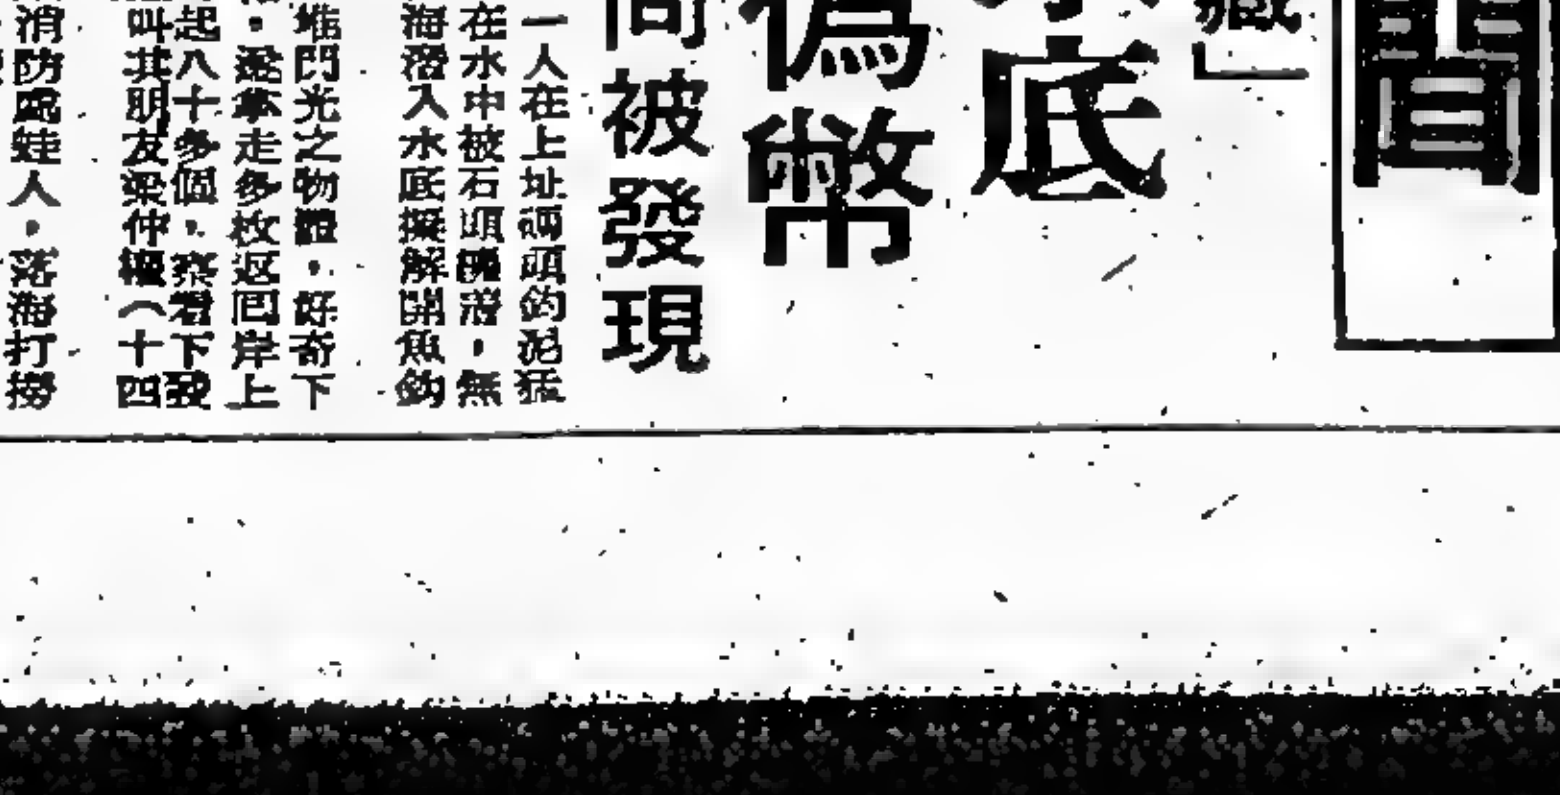 聞
藏」
底
偽幣
被發現
一人在上址兩頭釣泥猛
在水中被石頭,無
海潛入水底擬解開魚鈎
堆閃光之物體,好奇下
,遂拿走多枚返回岸上
起八十多個,察看下發
叫其朋友梁仲權(十四
消防處蛙人,落海打撈